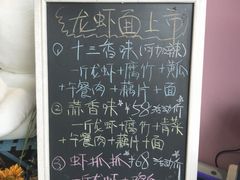 龙虾面上市
① 十三香味(可加辣)
一斤龙虾+腐竹+黄瓜
+午餐肉+藕片+面
② 蒜香味 ¥58 活动价
一斤龙虾+腐竹+青菜
+午餐肉+藕片+面
③ 虾抓抓 ¥68 活动价
一斤龙虾+